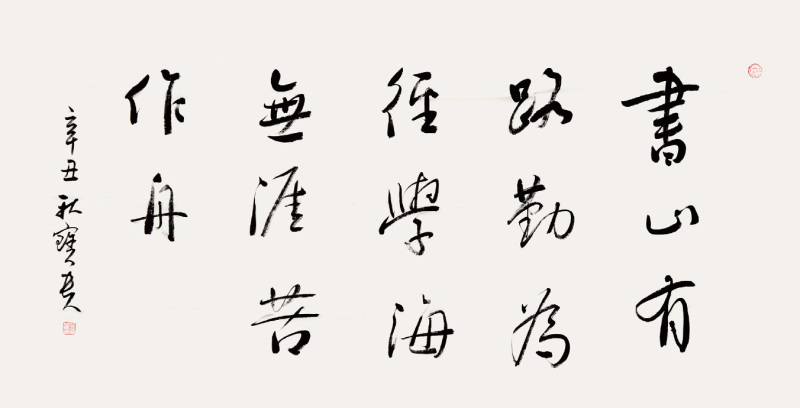 書山有
路勤為
徑學海
無涯苦
作舟
辛丑秋寶貴